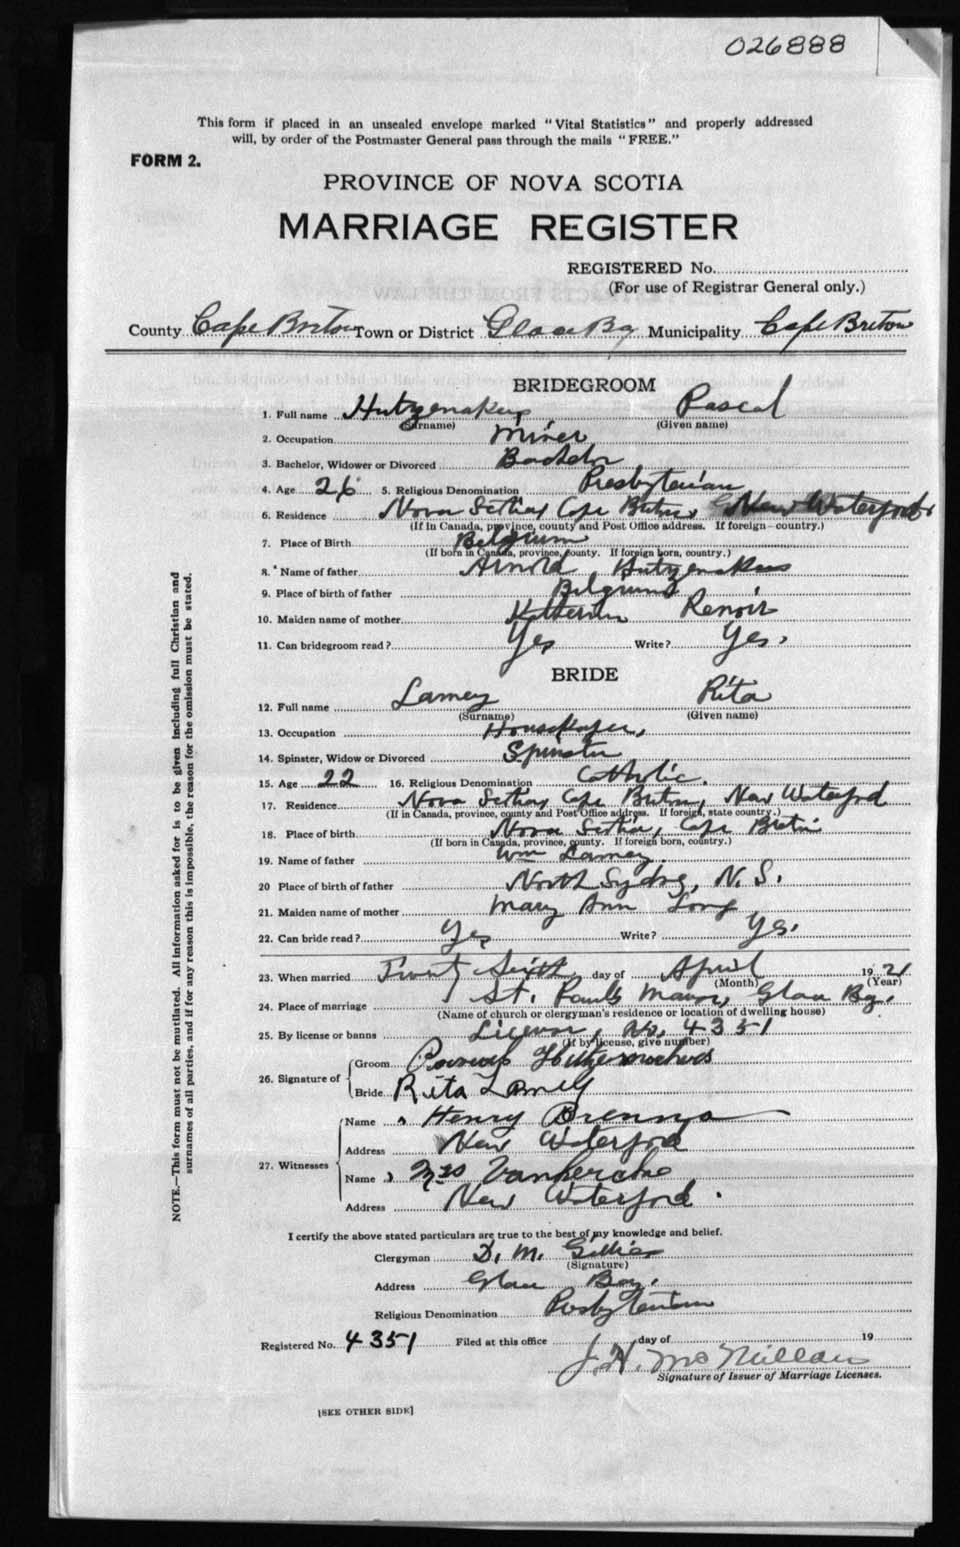 026888
This form if placed in an unsealed envelope marked "Vital Statistics" and properly addressed
will, by order of the Postmaster General pass through the mails "FREE."
FORM 2.
PROVINCE OF NOVA SCOTIA
MARRIAGE REGISTER
REGISTERED No.
(For use of Registrar General only.)
County Cape Breton Town or District Glace Bay Municipality Cape Breton
BRIDEGROOM
1. Full name Pascal
(Surname) (Given name)
2. Occupation Miner
3. Bachelor, Widower or Divorced Bachelor
4. Age 26 5. Religious Denomination Presbyterian
6. Residence Nova Scotia, Cape Breton, New Waterford
(If in Canada, province, county and Post Office address. If foreign—country.)
7. Place of Birth Belgium
(If born in Canada, province, county. If foreign born, country.)
8. Name of father Arnold
9. Place of birth of father Belgium
10. Maiden name of mother Renoir
11. Can bridegroom read? Yes Write? Yes.
BRIDE
12. Full name Lamey Rita
(Surname) (Given name)
13. Occupation Housekeeper,
14. Spinster, Widow or Divorced Spinster
15. Age 22 16. Religious Denomination Catholic.
17. Residence Nova Scotia, Cape Breton, New Waterford
(If in Canada, province, county and Post Office address. If foreign, state country.)
18. Place of birth Nova Scotia, Cape Breton
(If born in Canada, province, county. If foreign born, country.)
19. Name of father Wm Lamey.
20 Place of birth of father North Sydney, N. S.
21. Maiden name of mother Mary Ann Long
22. Can bride read? Yes Write? Yes.
23. When married Twenty Sixth day of April 1921
(Month) (Year)
24. Place of marriage St. Pauls Manse, Glace Bay.
(Name of church or clergyman's residence or location of dwelling house)
25. By license or banns License, No. 4351
(If by license, give number)
26. Signature of
Groom
Bride Rita Lamey
27. Witnesses
Name Henry
Address New Waterford
Name Mrs
Address New Waterford.
I certify the above stated particulars are true to the best of my knowledge and belief.
Clergyman D. M. Gillies
(Signature)
Address Glace Bay.
Religious Denomination Presbyterian
Registered No. 4351 Filed at this office day of 19
J. H. McMillan
Signature of Issuer of Marriage Licenses.
[SEE OTHER SIDE]
NOTE.—This form must not be mutilated. All information asked for is to be given including full Christian and
surnames of all parties, and if for any reason this is impossible, the reason for the omission must be stated.